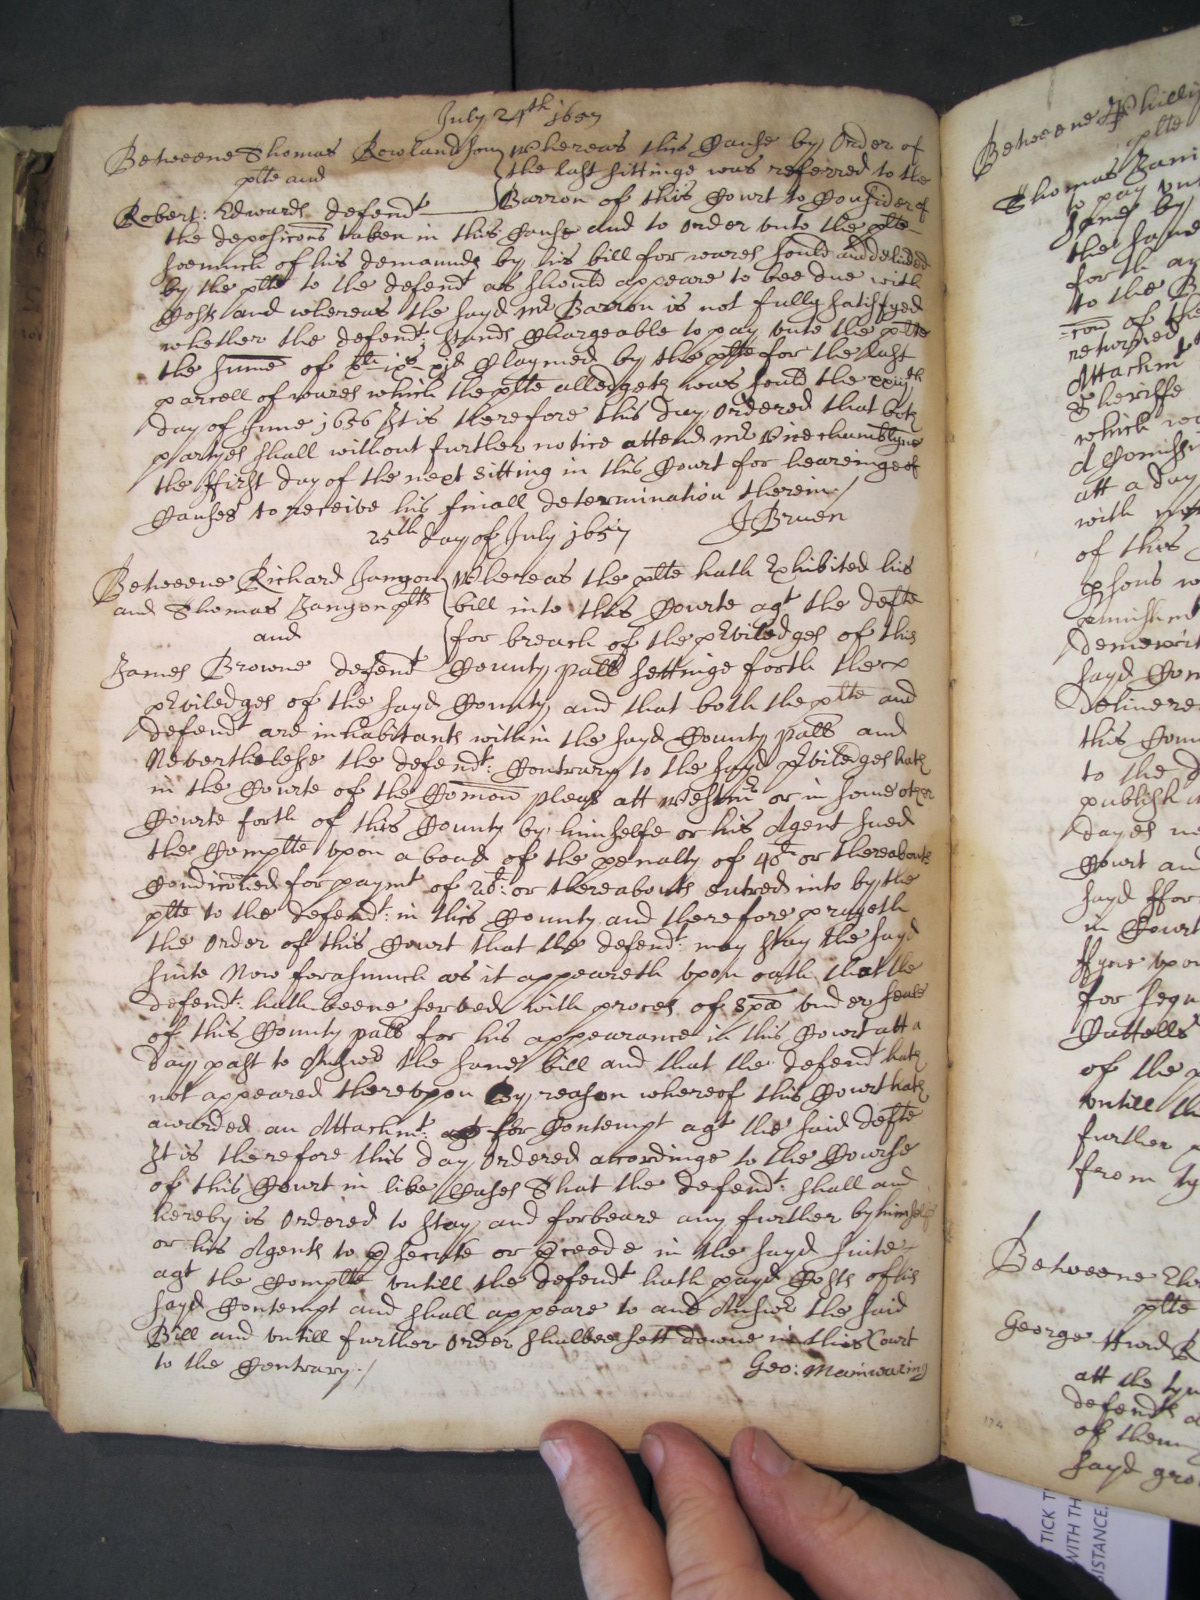 July 24th 1657
Betweene Thomas Rowlandson Whereas this Cause by Order of
plte and the last sittinge was referred to the
Robert: Edwards defendt Barron of this Court to Consider of
the deposicons taken in this Cause and to Order unto the plte
soemuch of his demaunds by his bill for wares sould and delided
by the plte to the defendt as should appeare to bee due with
Costs and whereas the sayd mr Barron is not fully satisfyed
whether the defendt: stands Chargeable to pay unto the plte
the sume of Claymed by the plte for the last
parcell of wares which the plte alledgeth was sould the
day of June 1656 It is therefore this day Ordered that both
partyes shall without further notice attend mr Vicechamblyne
the ffirst day of the next sitting in this Court for hearinge of
Causes to receive his finall determination therein /
J Bruen
25th day of July 1657
Betweene Richard Janyon Whereas the plte hath Exhibited his
and Thomas Janyon plts bill into this Courte agt the defte
and for breach of the pviledges of this
James Browne defendt County palt settinge forth the
pviledges of the sayd County and that both the plte and
defendt are inhabitants within the sayd County palt and
Neverthelesse the defendt: Contrary to the sayd pviledges hath
in the Courte of the Comon pleas att Westmr or in some other
Courte forth of this County by himselfe or his Agent sued
the Complte upon a bond of the penalty of 40l or thereabouts
Condiconed for paymt of 20l: or thereabouts entred into by the
plte to the defendt: in this County and therefore prayeth
the Order of this Court that the defendt: may stay the sayd
suite Now forasmuch as it appeareth upon oath that the
defendt: hath beene served with proces of spa under seale
of this County palt for his appearance in this Court att a
day past to Answer the same bill and that the defendt hath
not appeared thereupon By reason whereof this Court hath
awarded an Attachmt: for Contempt agt the said defte
It is therefore this day Ordered accordinge to the Course
of this Court in like Cases That the defendt: shall and
hereby is Ordered to stay and forbeare any further by himselfe
or his Agents to psecute or pceede in the sayd suite
agt the Complte untill the defendt hath payd Costs of his
sayd Contempt and shall appeare to and Answer the said
Bill and untill further Order shalbee sett downe in this Court
to the Contrary. /
Geo: Mainwaring
Betweene Phillip
plte
Thomas
to pay unt
by
the same
forth
to the
of the
returned
Attachm
Sheriffe
which
att a day
with
of this
psons
sayd
Delivered
this
to the
publish
dayes
Court and
sayd ffor
in Court
ffyve upon
for sequ
Cattells
of the
untill th
further
from
Betweene
plte
George
att the
defendts
of them
sayd
174
TICK T
WITH TH
ISTANCE.